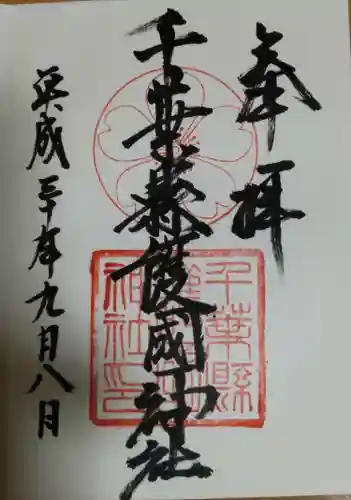 奉拝
千葉縣護國神社
平成三十年九月八日
千葉縣護國神社印